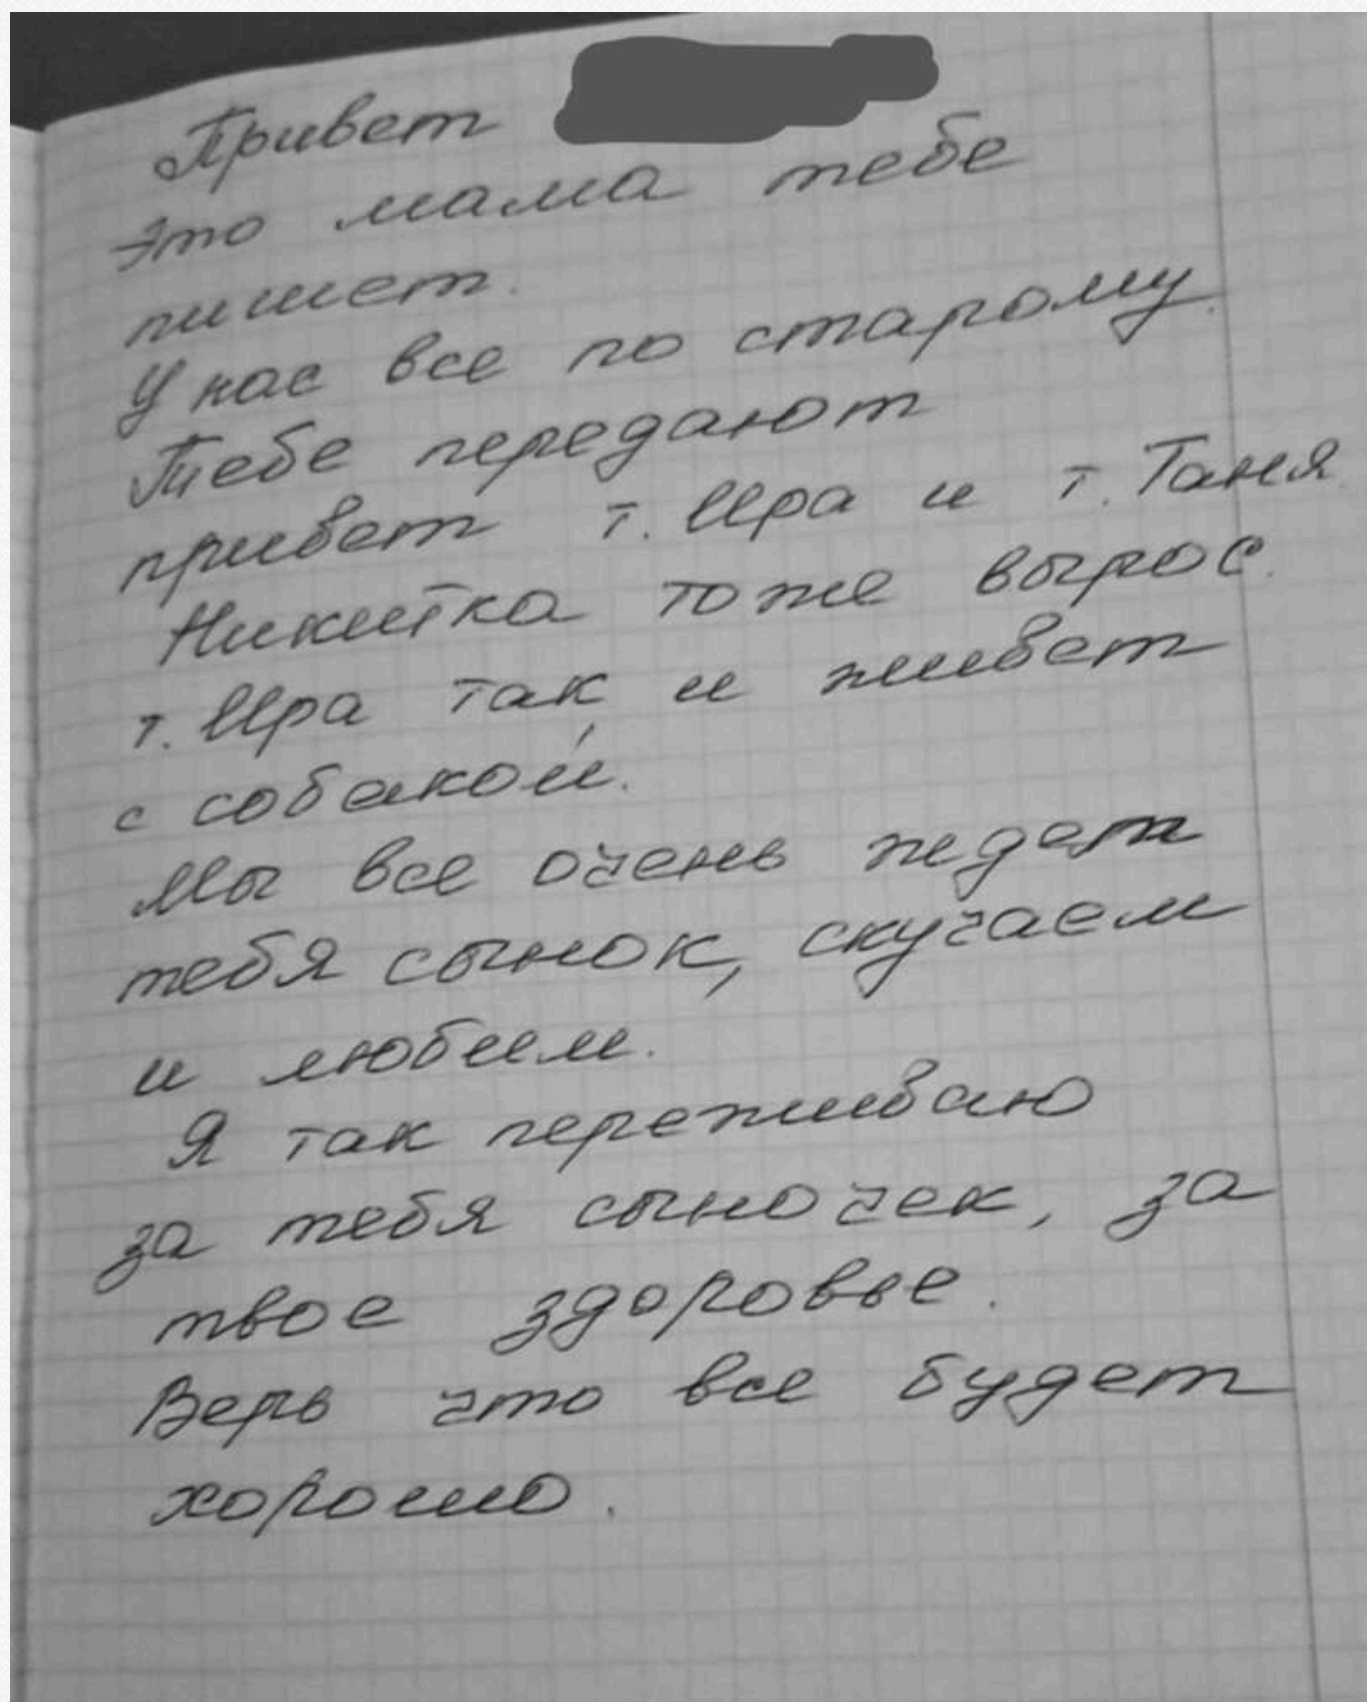 Привет
Это мама тебе
пишет.
У нас все по старому.
Тебе передают
привет т. Ира и т. Таня.
Никитка тоже вырос.
т. Ира так и живет
с собакой.
Мы все очень ждем
тебя сынок, скучаем
и любим.
Я так переживаю
за тебя сыночек, за
твое здоровье.
Верь что все будет
хорошо.